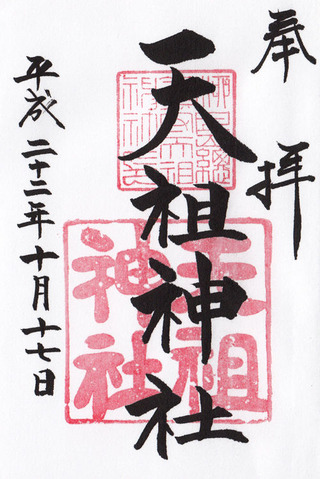 奉拝
天祖神社
平成二十二年十月十七日
天祖
神社